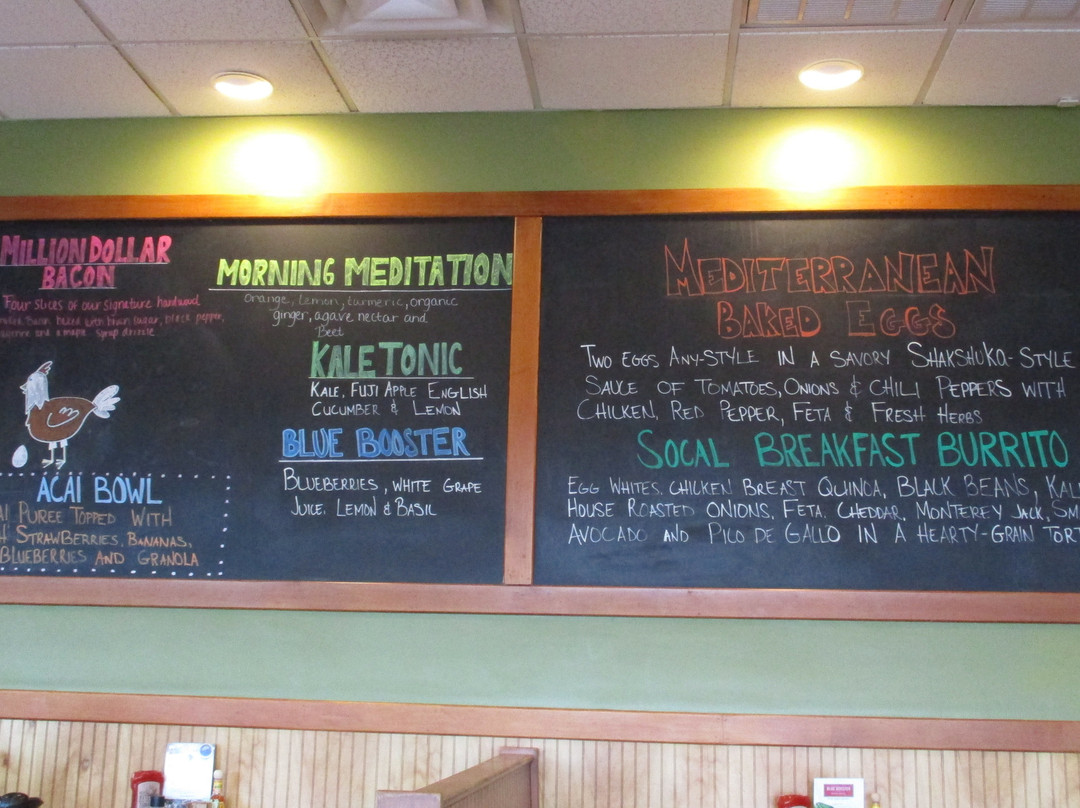 MILLION DOLLAR
BACON
Four slices of our signature hardwood
smoked bacon baked with brown sugar, black pepper,
cayenne and a maple syrup drizzle
AÇAI BOWL
PUREE TOPPED WITH
STRAWBERRIES, BANANAS,
BLUEBERRIES AND GRANOLA
MORNING MEDITATION
Orange, Lemon, turmeric, organic
ginger, agave nectar and
Beet
KALE TONIC
KALE, FUJI APPLE ENGLISH
CUCUMBER & LEMON
BLUE BOOSTER
BLUEBERRIES, WHITE GRAPE
JUICE, LEMON & BASIL
MEDITERRANEAN
BAKED EGGS
TWO EGGS ANY-STYLE IN A SAVORY SHAKSHUKA-STYLE
SAUCE OF TOMATOES, ONIONS & CHILI PEPPERS WITH
CHICKEN, RED PEPPER, FETA & FRESH HERBS
SOCAL BREAKFAST BURRITO
EGG WHITES, CHICKEN BREAST QUINOA, BLACK BEANS, KAL
HOUSE ROASTED ONIONS, FETA, CHEDDAR, MONTEREY JACK, SM
AVOCADO AND PICO DE GALLO IN A HEARTY-GRAIN TORT